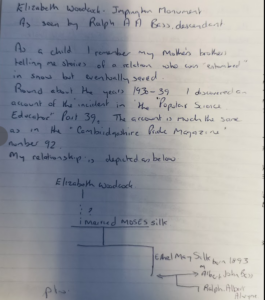 Elizabeth Woodcock - Impington Monument
As seen by Ralph A A Bess, descendent
As a child I remember my Mothers brothers
telling me stories of a relation who was "entombed"
in snow but eventually saved
Round about the years 1936-39 I discovered an
account of the incident in the "Popular Science
Educator" Part 39. The account is much the same
as in the "Cambridgeshire Pride Magazine"
number 92.
My relationship is depicted as below
Elizabeth Woodcock
?
1 married MOSES Silk
Ethel May Silk born 1893
m
Albert John Bess
Ralph Albert